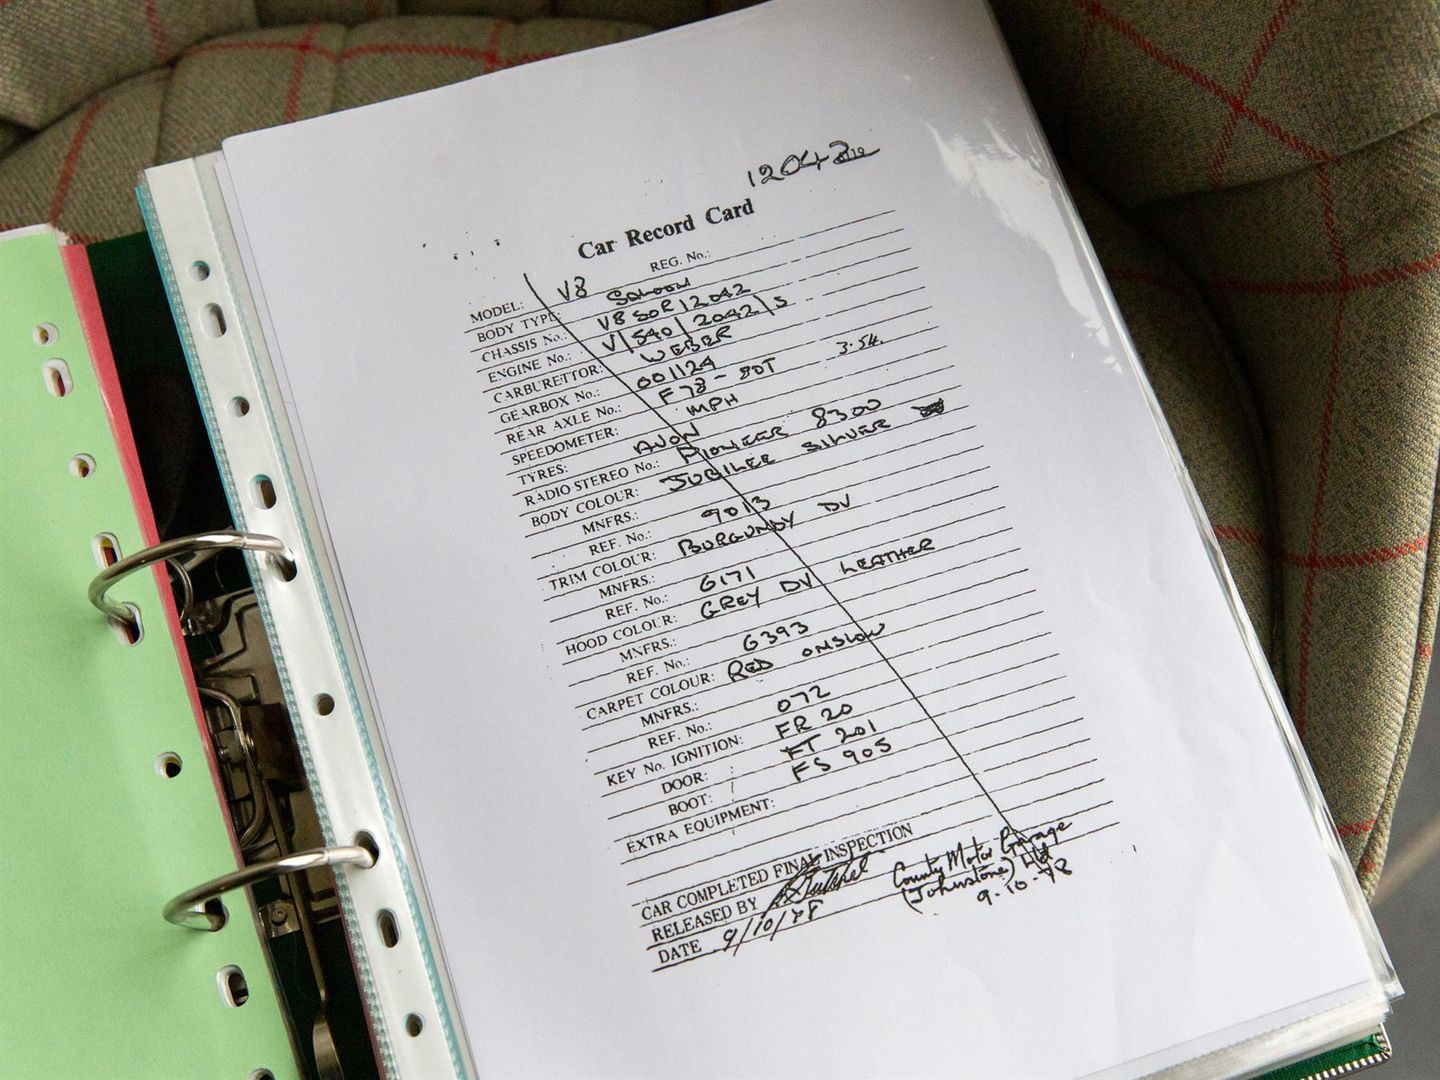 12042
Car Record Card
REG. No.:
MODEL: V8
BODY TYPE: SALOON
CHASSIS No.: V8SOR12042
ENGINE No.: V/540/2042/S
CARBURETTOR: WEBER
GEARBOX No.: 001124
REAR AXLE No.: F78-80T 3.54.
SPEEDOMETER: MPH
TYRES: AVON
RADIO STEREO No.: PIONEER 8300
BODY COLOUR: JUBILEE SILVER
MNFRS.:
REF. No.: 9013
TRIM COLOUR: BURGUNDY DV
MNFRS.:
REF. No.: 6171
HOOD COLOUR: GREY DV LEATHER
MNFRS.:
REF. No.: 6393
CARPET COLOUR: RED ONSLOW
MNFRS.:
REF. No.: 072
KEY No. IGNITION: FR 20
DOOR: FT 201
BOOT: FS 905
EXTRA EQUIPMENT:
CAR COMPLETED FINAL INSPECTION
RELEASED BY
DATE 9/10/78
County Motor Garage
(Johnstone) Ltd
9.10.78